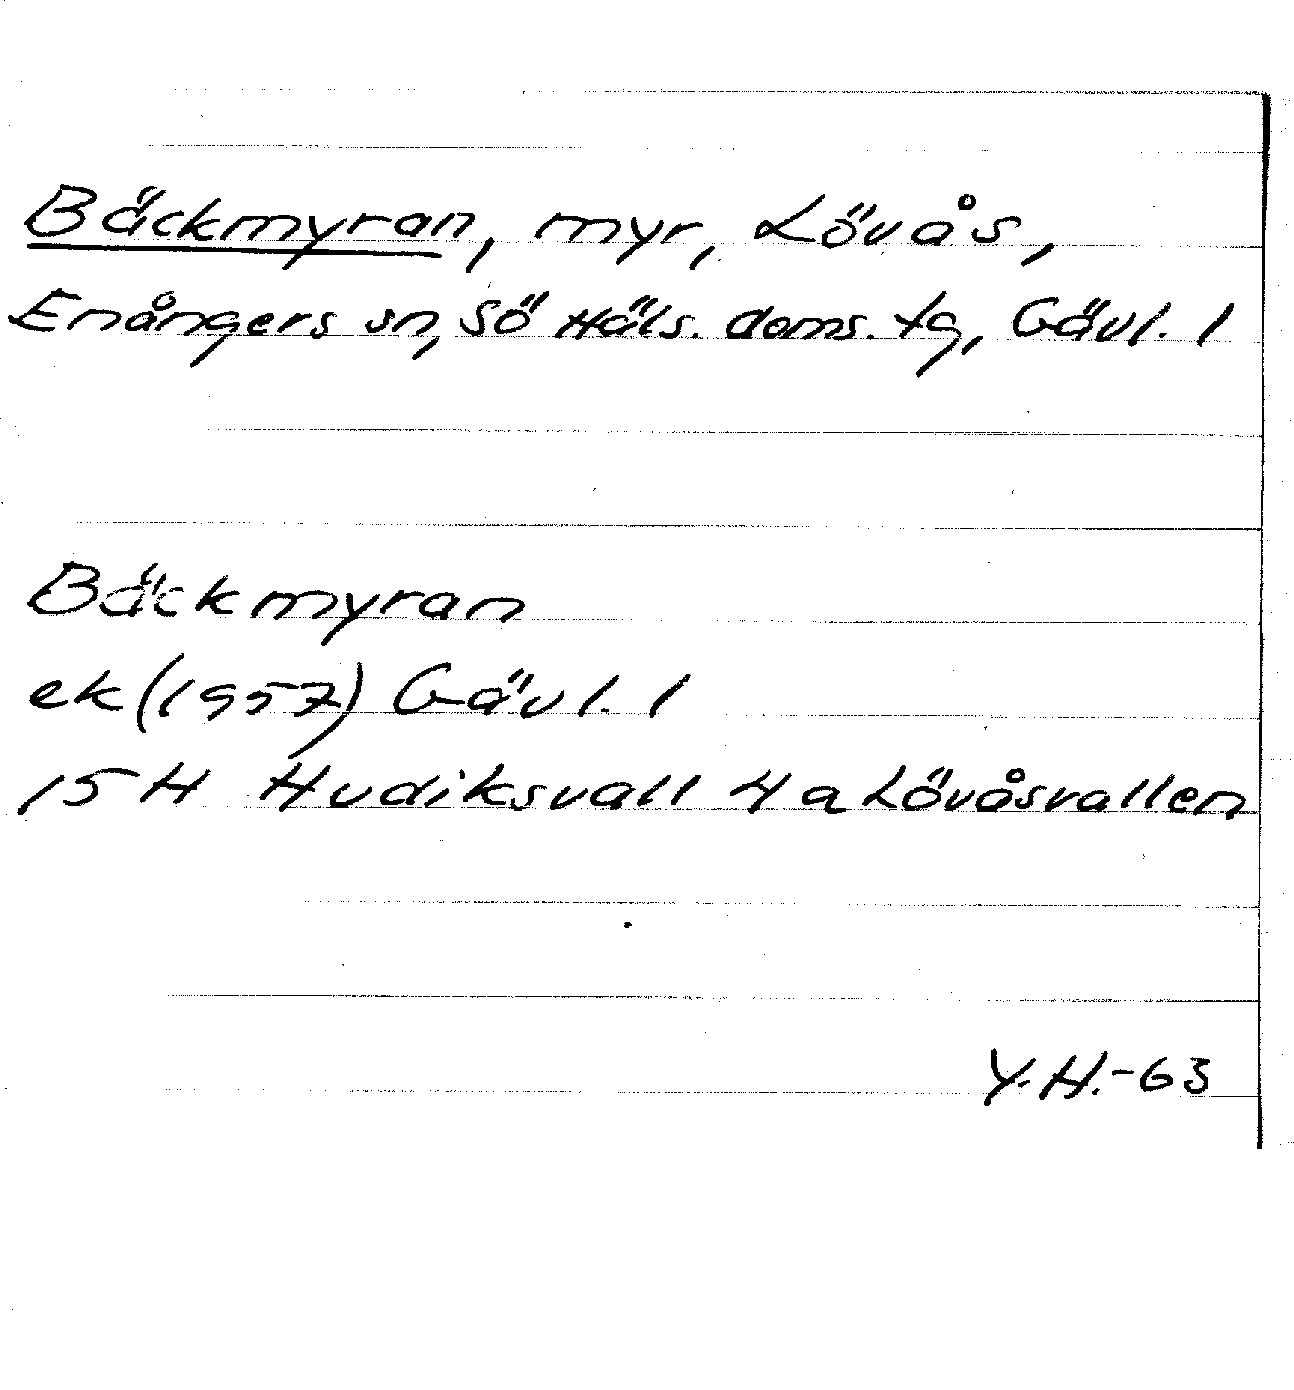 Bäckmyran, myr, Lövås,
Enångers sn, Sö Häls. doms. tg, Gävl. l
Bäckmyran
ek (1957) Gävl. l
15 H Hudiksvall 4 a Lövåsvallen
Y.H.-63